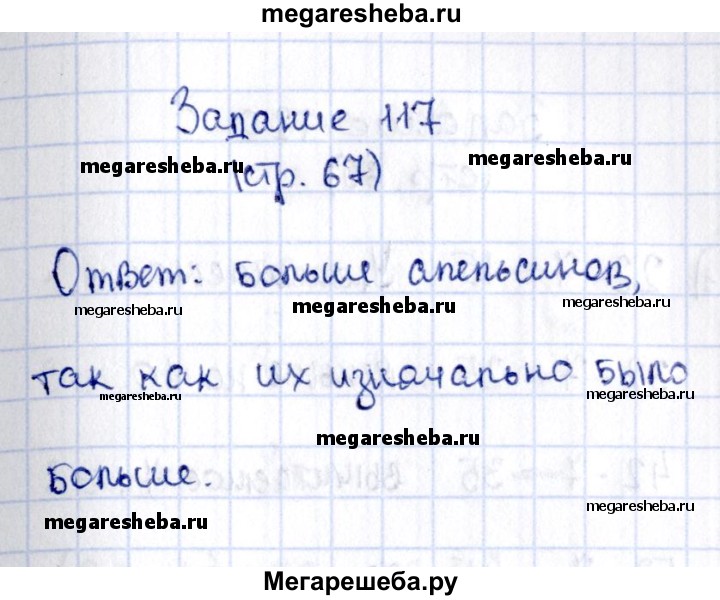 megaresheba.ru
Задание 117
megaresheba.ru
megaresheba.ru
(стр. 67)
Ответ: больше апельсинов,
megaresheba.ru
megaresheba.ru
megaresheba.ru
так как их изначально было
megaresheba.ru
megaresheba.ru
megaresheba.ru
больше.
megaresheba.ru
megaresheba.ru
Мегарешеба.ру